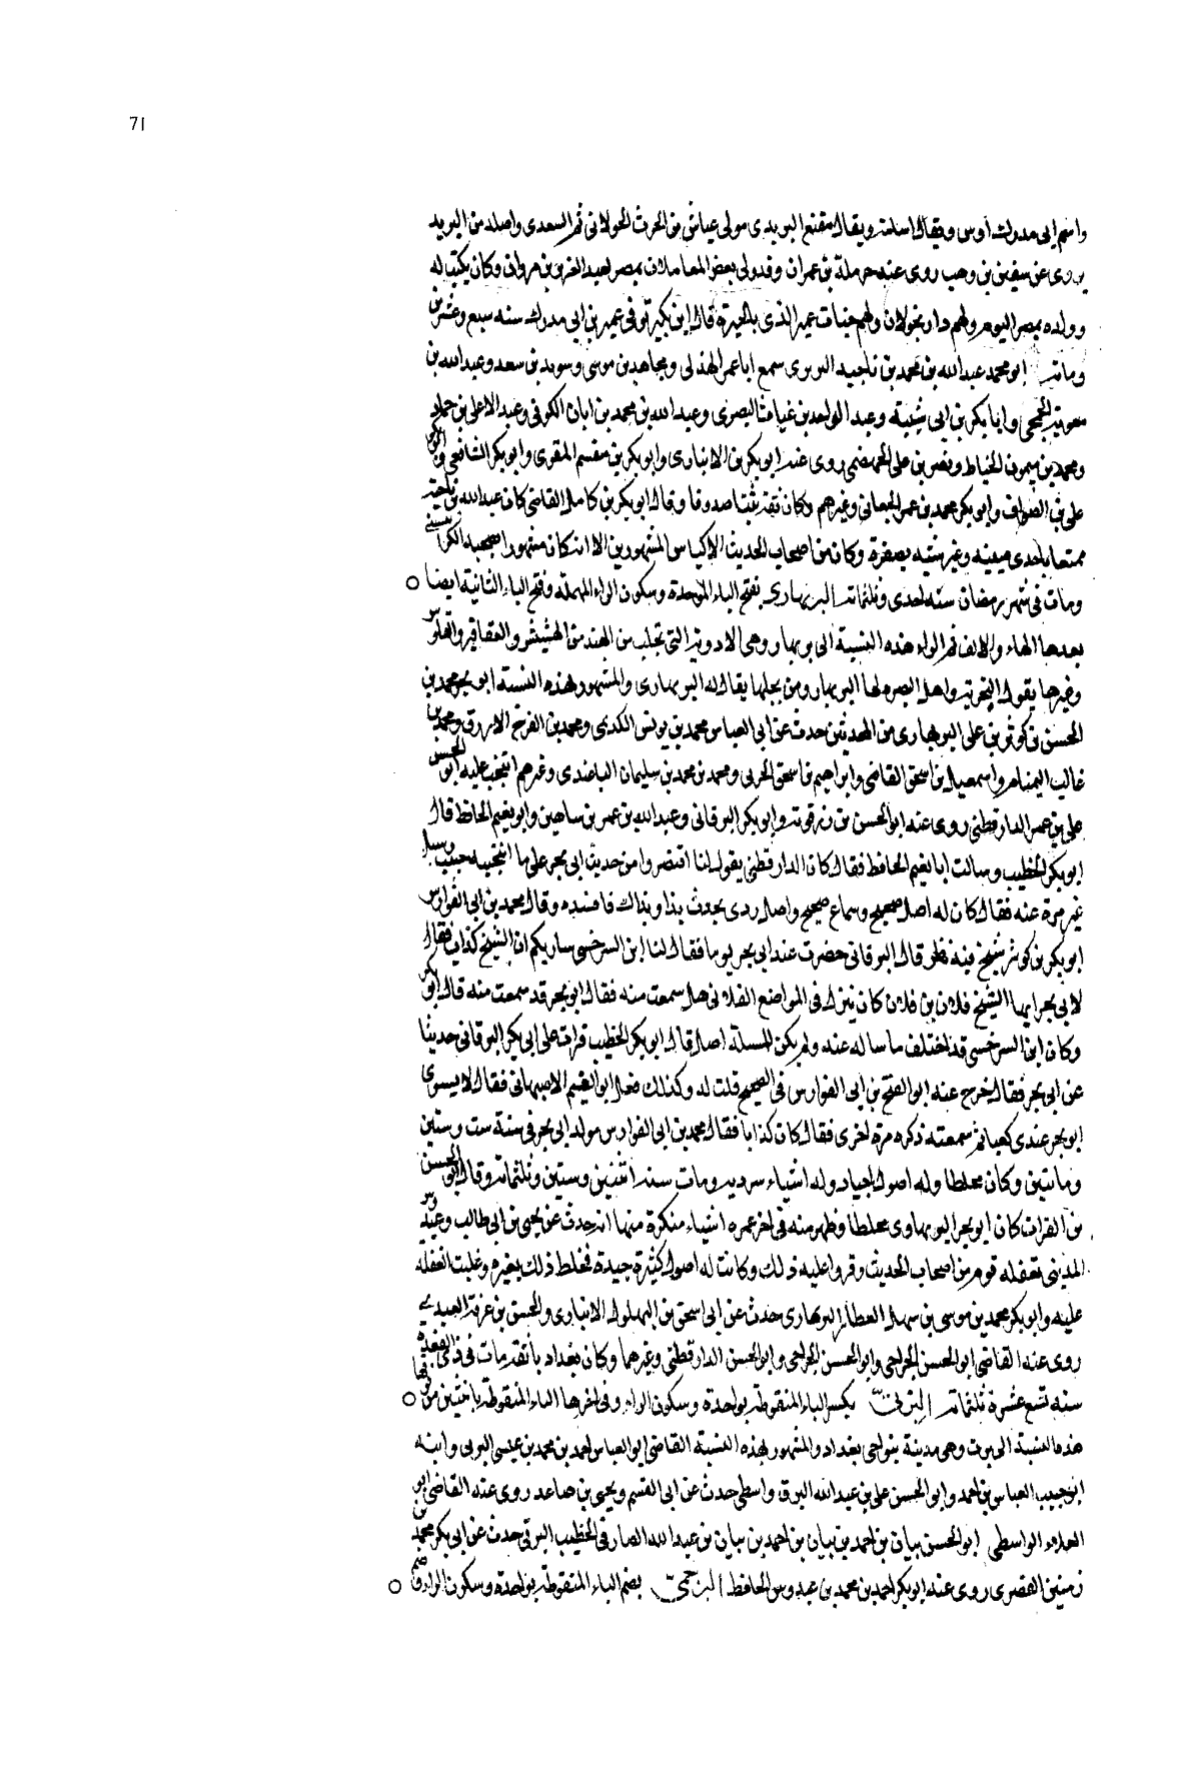 71
واسم ابى مدرك اوس ويقال اسلم ويقال مقنع البريدى مولى عياش من الحرث الخولانى ثم السعدى واصله من البريد
يروى عن سفين بن وهب روى عنه حرملة بن عمران وقد ولى بعض المعاملات بمصر لعبد العزيز بن مروان وكان يكتب له
وولده بمصر اليوم ولهم دار بخولان ولهم جنات عمير الذى بالجيزة قال ابن بكير توفى عمير بن ابى مدرك سنه سبع وعشرين
ومائة ابو محمد عبد الله بن محمد بن ناجيه البربرى سمع ابا معمر الهذلى ومجاهد بن موسى وسويد بن سعد وعبد الله بن
معوية الجمحى وابا بكر بن ابى شيبة وعبد الواحد بن غياث البصرى وعبد الله بن محمد بن ابان الكوفى وعبد الاعلى بن حماد
ومحمد بن ميمون الخياط ونصر بن على الجهضمى روى عنه ابو بكر بن الانبارى وابو بكر بن مقسم المقرى وابو بكر الشافعى وابو
على بن الصواف وابو بكر محمد بن عمر الجعابى وغيرهم وكان ثقة ثبتا صدوقا وقال ابو بكر بن كامل القاضى كان عبد الله بن ناجية
ممتعا باحدى عينيه وغير شيبه بصفرة وكان من اصحاب الحديث الاكياس المشهورين الا انه كان مشهورا بصحبه الكرابيسى
ومات فى شهر رمضان سنه احدى وثلثمائه البربهارى بفتح الباء الموحدة وسكون الراء المهملة وفتح الباء الثانية ايضا ○
بعدها الهاء والالف ثم الراء هذه النسبة الى بربهار وهى الادوية التى تجلب من الهند من الهشيش والعقاقير والفلوس
وغيرها يقول البحرية واهل البصره لها البربهار ومن يجلبها يقال له البربهارى والمشهور بهذه النسبة ابو بحر محمد بن
الحسن بن كوثر بن على البربهارى من المحدثين حدث عن ابى العباس محمد بن يونس الكدى ومحمد بن الفرج الازرق ومحمد بن
غالب التمتام واسمعيل بن اسحق القاضى وابراهيم بن اسحق الحربى ومحمد بن محمد بن سليمان الباغندى وغيرهم انتخب عليه ابو الحسن
على بن عمر الدارقطنى روى عنه ابو الحسن بن رزقويه وابو بكر البرقانى وعبد الله بن عمر بن شاهين وابو نعيم الحافظ قال
ابو بكر الخطيب وسالت ابا نعيم الحافظ فقال كان الدارقطنى يقول لنا اقتصروا من حديث ابى بحر على ما انتخبته حسب وسيل
غير مرة عنه فقال كان له اصل صحيح وسماع صحيح واصل ردى يحدث بذا وبذاك فافسده وقال محمد بن ابى الفوارس
ابو بكر بن كوثر شيخ فيه نظر قال البرقانى حضرت عند ابى بحر يوما فقال لنا ابن السرخسى ساريكم ان الشيخ كذاب فقال
لابى بحر ايها الشيخ فلان بن فلان كان ينزل فى المواضع الفلانى هل سمعت منه فقال ابو بحر قد سمعت منه قال ابو بكر
وكان ابن السرخسى قد اختلف ما ساله عنه ولم يكن للمسلة اصل قال ابو بكر الخطيب قرات على ابى بكر البرقانى حديثا
عن ابى بحر فقال خرج عنه ابو الفتح بن ابى الفوارس فى الصحيح قلت له وكذلك فعل ابو نعيم الاصبهانى فقال لا يسوى
ابو بحر عندى كعبا ثم سمعته ذكره مرة اخرى فقال كان كذابا فقال محمد بن ابى الفوارس مولد ابى بحر فى سنة ست وستين
ومائتين وكان مخلطا وله اصول جياد وله اشياء ردية ومات سنة اثنين وستين وثلثمائة وقال ابو الحسن
بن الفرات كان ابو بحر البربهارى مخلطا وظهر منه فى اخر عمره اشياء منكرة منها انه حدث عن يحيى بن ابى طالب وعبدوس
المدينى بغفله قوم من اصحاب الحديث وقروا عليه ذلك وكانت له اصول كثيرة جيدة فخلط ذلك بغيره وغلبت الغفلة
عليه وابو بكر محمد بن موسى بن سهل العطار البربهارى حدث عن ابى اسحق بن البهلول الانبارى والحسن بن عرفة العبدى
روى عنه القاضى ابو الحسن الجراحى وابو الحسن الجراحى وابو الحسن الدارقطنى وغيرهما وكان بغداد يا ثقة مات فى ذى القعده
سنه تسع عشرة ثلثمائة البرتى بكسر الباء المنقوطة بواحدة وسكون الراء وفى اخرها التاء المنقوطة باثنتين من فوقها ○
هذه النسبة الى برت وهى مدينة بنواحى بغداد والمشهور بهذه النسبة القاضى ابو العباس احمد بن محمد بن عيسى البرتى وابنه
ابو حبيب العباس بن احمد وابو الحسن على بن عبد الله البرتى واسطى حدث عن ابى القسم ويحيى بن صاعد روى عنه القاضى ابو
العلاء الواسطى ابو الحسن بيان بن احمد بن بيان بن احمد بن بيان بن عبد الله الصارفى الخطيب البرتى حدث عن ابى بكر محمد بن
زمنين المصرى روى عنه ابو بكر احمد بن محمد بن عبدوس الحافظ البرجمى بضم الباء المنقوطة بواحدة وسكون الراء وضم ○